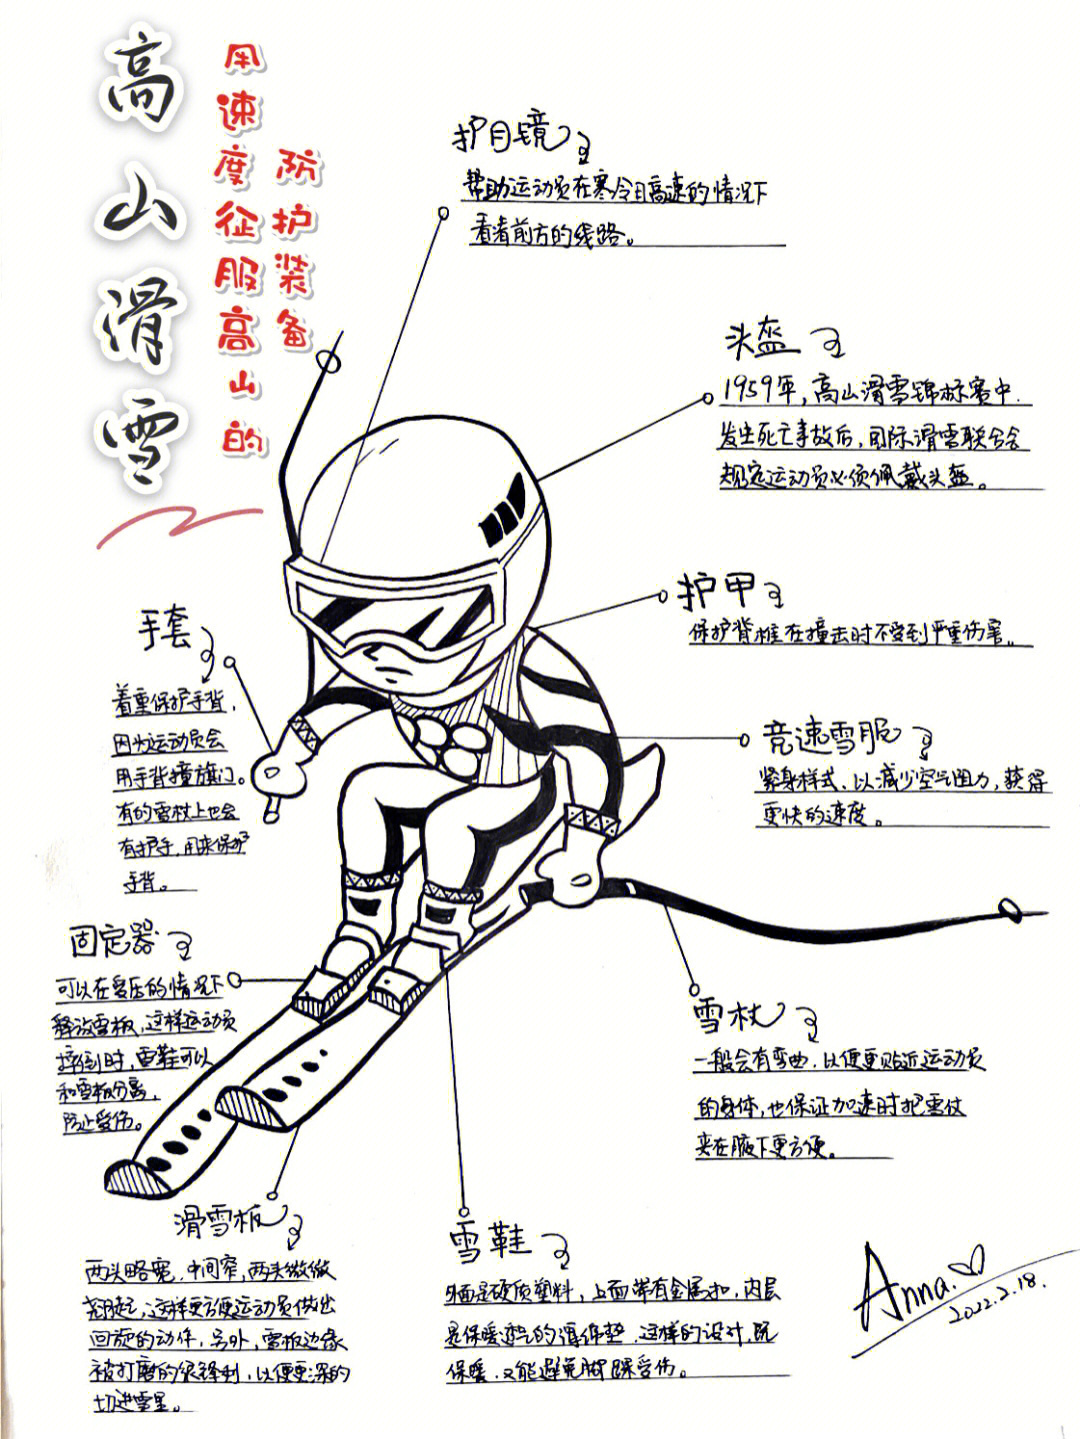 高山滑雪
用速度征服高山的
防护装备
护目镜
帮助运动员在寒冷且高速的情况下
看着前方的线路。
头盔
1959年，高山滑雪锦标赛中
发生死亡事故后，国际滑雪联合会
规定运动员必须佩戴头盔。
护甲
保护脊椎在撞击时不受到严重伤害。
竞速雪服
紧身样式，以减少空气阻力，获得
更快的速度。
手套
着重保护手背，
因为运动员会
用手背撞旗门。
有的雪杖上也会
有护手，用来保护
手背。
固定器
可以在受压的情况下
释放雪板，这样运动员
摔倒时，雪鞋可以
和雪板分离，
防止受伤。
雪杖
一般会有弯曲，以便更贴近运动员
的身体，也保证加速时把雪杖
夹在腋下更方便。
滑雪板
两头略宽，中间窄，两头微微
翘起，这样更方便运动员做出
回旋的动作，另外，雪板边缘
被打磨的很锋利，以便更深的
切进雪里。
雪鞋
外面是硬质塑料，上面带有金属扣，内层
是保暖透气的海绵垫，这样的设计，既
保暖，又能避免脚踝受伤。
Anna.
2022.2.18.